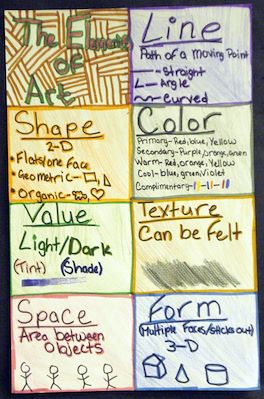 The Elements
of
Art
Line
Path of a Moving Point
Straight
Angle
Curved
Shape
2-D
Flat/one Face
Geometric-
Organic-
Color
Primary-Red, blue, Yellow
Secondary-Purple, orange, Green
Warm-Red, orange, Yellow
Cool-blue, green, violet
Complimentary-
Value
Light/Dark
(Tint) (Shade)
Texture
Can be felt
Space
Area between
Objects
Form
(Multiple Faces/sticks out)
3-D